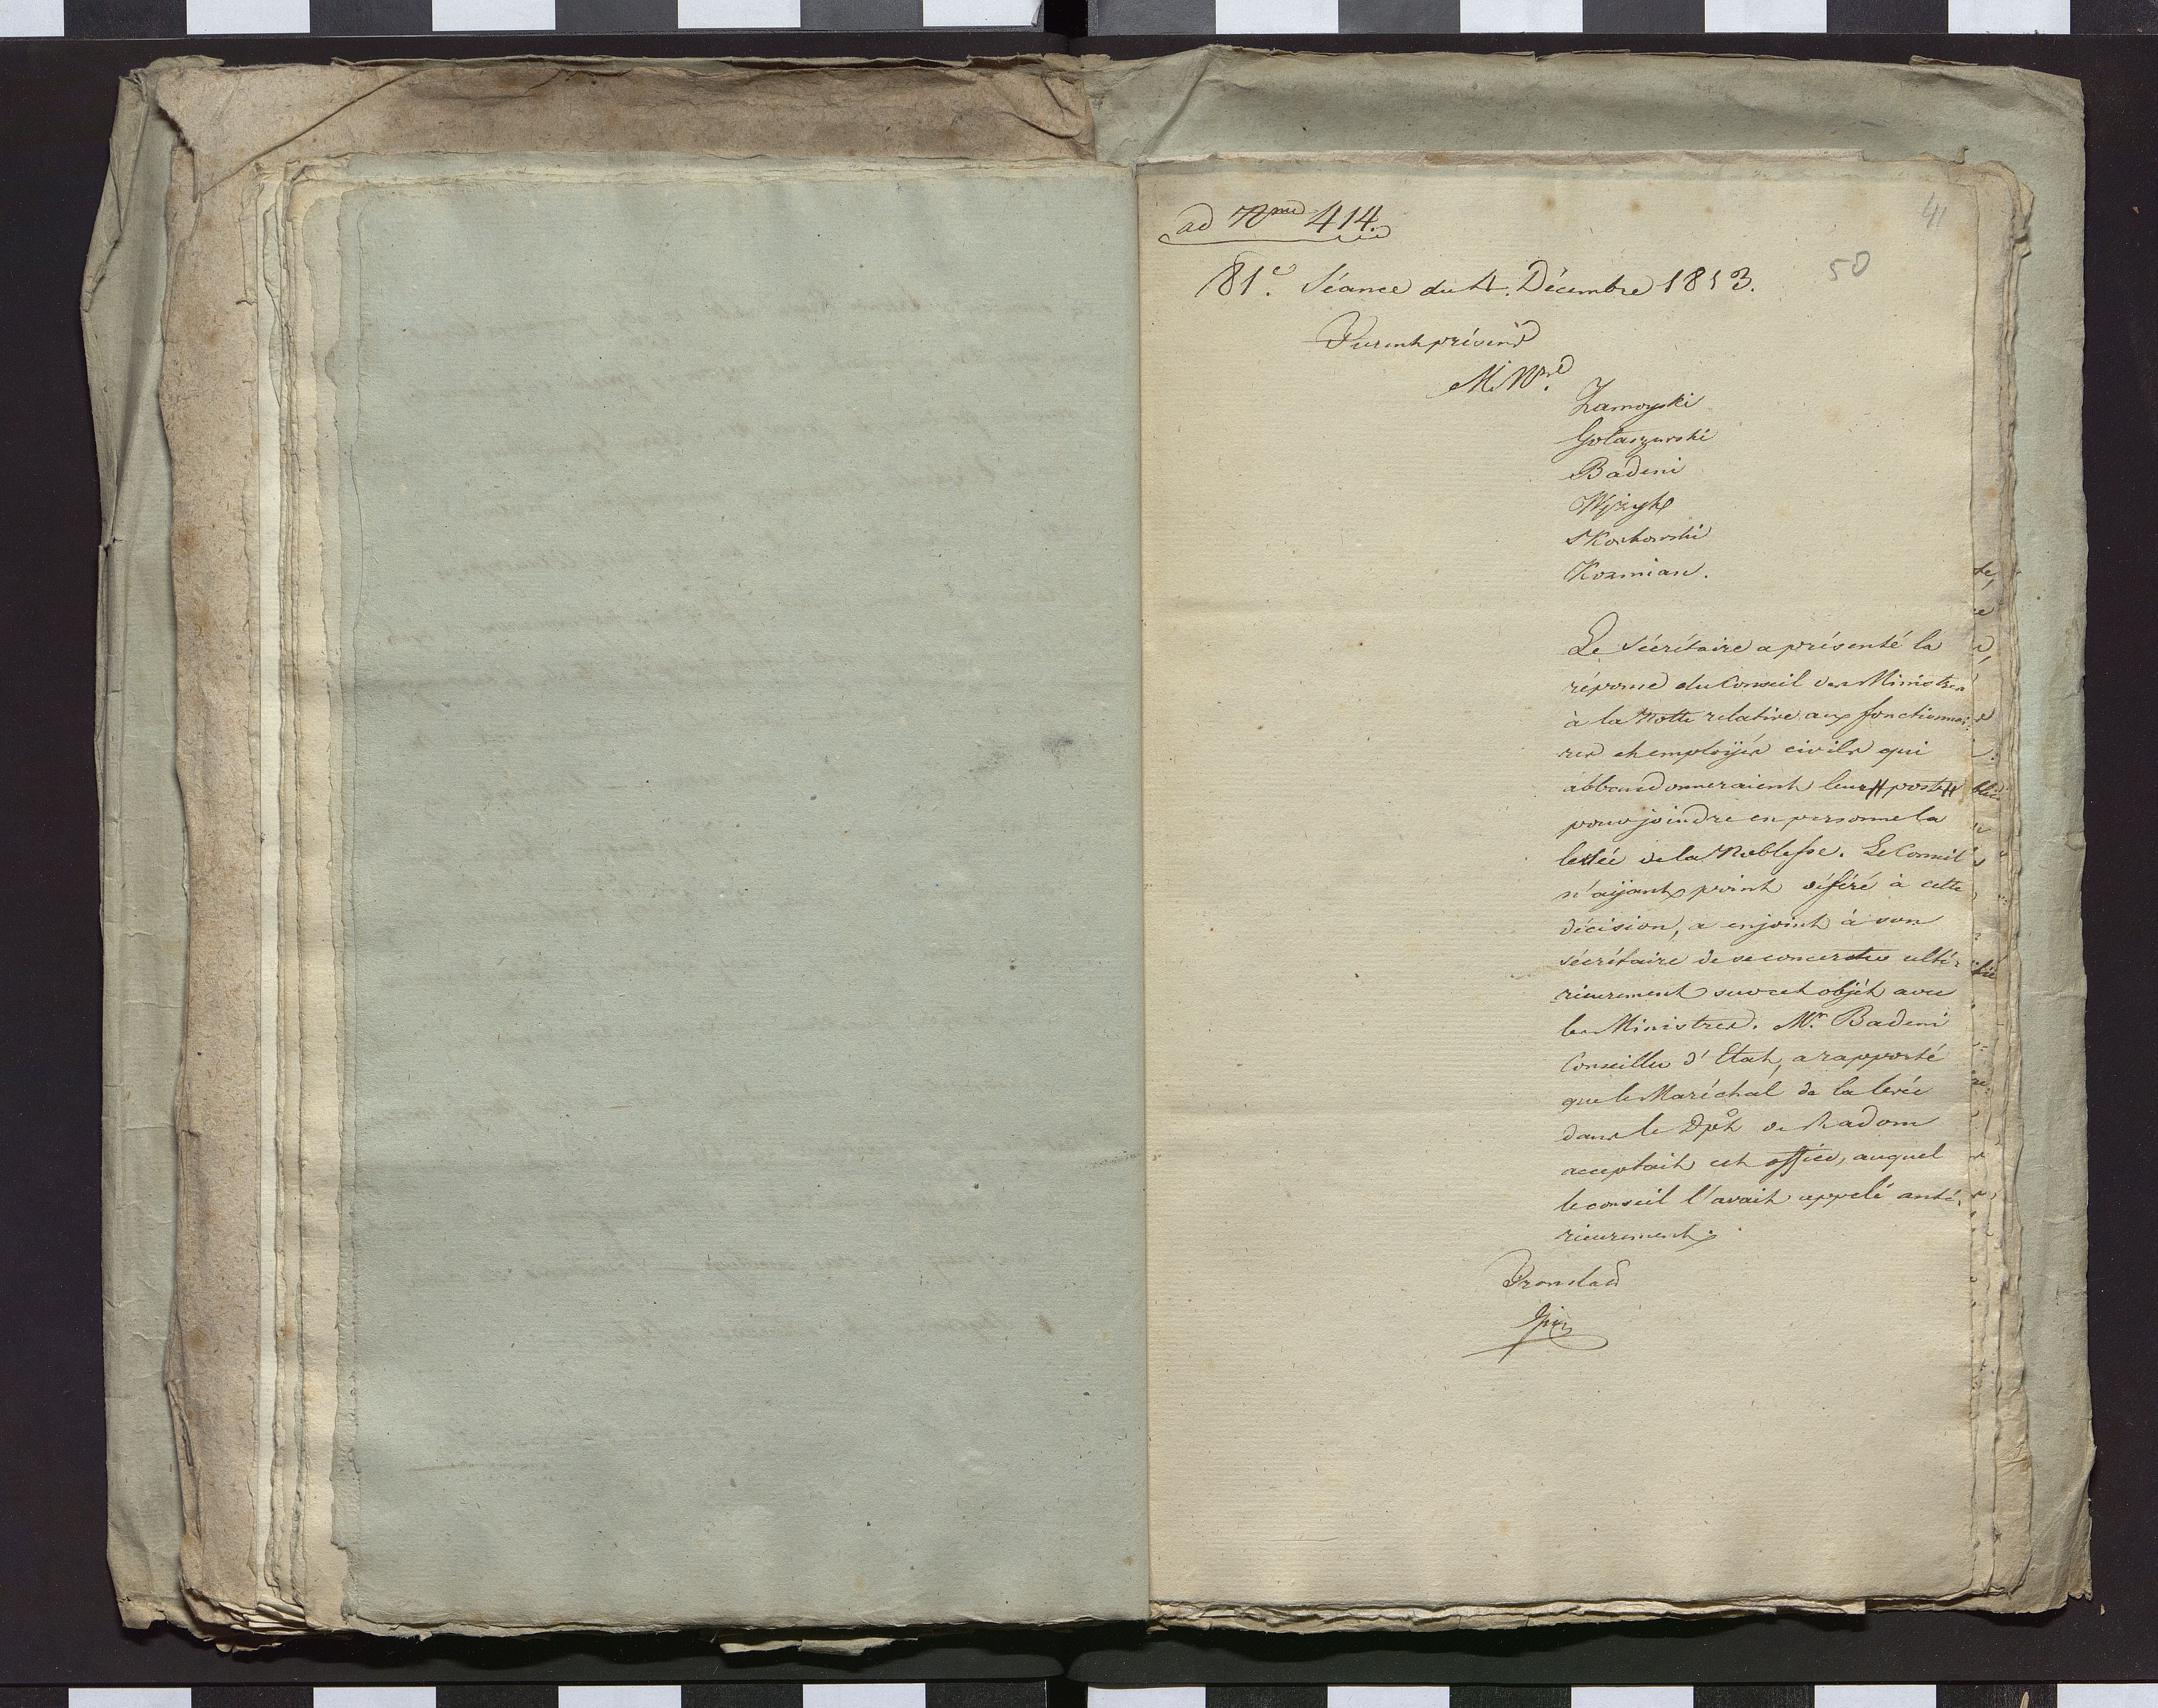 41
ad Nrum 414.
50
81.e Séance du 4. Décembre 1813.
Furent présens
M. Mrs.
Zamoyski
Gołaszewski
Badeni
Wężyk
Skorkowski
Kozmian.
Le Sécrétaire a présenté la
réponse du Conseil des Ministres
à la Notte relative aux fonctionnai-
res et employés civils qui
abbandonneraient leurs postes
pour joindre en personne la
levée de la Noblesse. Le Conseil
n'aÿant point déféré à cette
décision, a enjoint à son
sécrétaire de se concerter ulté-
rieurement sur cet objèt avec
les Ministres. Mr. Badeni
Conseiller d'Etat, a rapporté
que le Maréchal de la levée
dans le Dpt de Radom
acceptait cet office, auquel
le conseil l'avait appelé anté-
rieurement.